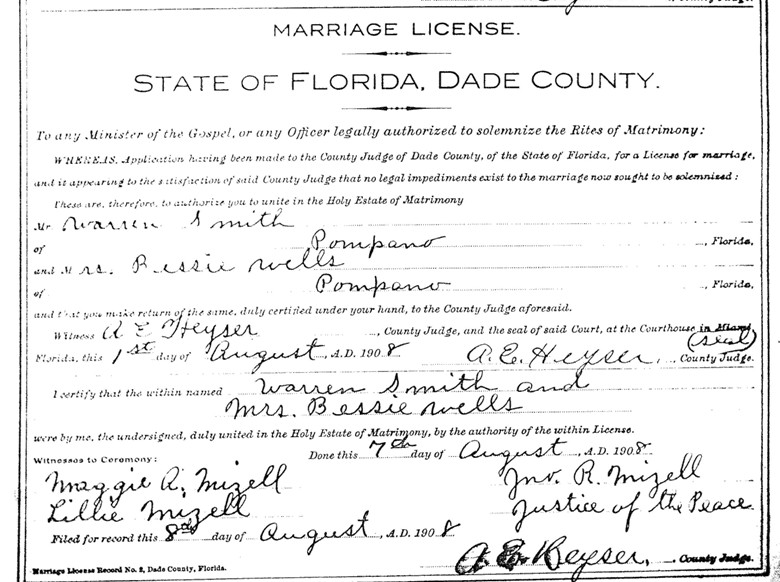 County Judge.
MARRIAGE LICENSE.
STATE OF FLORIDA, DADE COUNTY.
To any Minister of the Gospel, or any Officer legally authorized to solemnize the Rites of Matrimony:
WHEREAS, Application having been made to the County Judge of Dade County, of the State of Florida, for a License for marriage,
and it appearing to the satisfaction of said County Judge that no legal impediments exist to the marriage now sought to be solemnized:
These are, therefore, to authorize you to unite in the Holy Estate of Matrimony
Mr. Warren Smith
of Pompano, Florida,
and Mrs. Bessie Wells
of Pompano, Florida,
and that you make return of the same, duly certified under your hand, to the County Judge aforesaid.
Witness A E Heyser, County Judge, and the seal of said Court, at the Courthouse in Miami,
(seal)
Florida, this 1st day of August, A.D. 1908. A. E. Heyser, County Judge.
I certify that the within named Warren Smith and
Mrs. Bessie Wells
were by me, the undersigned, duly united in the Holy Estate of Matrimony, by the authority of the within License.
Done this 7th day of August, A.D. 1908
Witnesses to Ceremony:
Maggie A. Mizell Jno. R. Mizell
Lillie Mizell Justice of the Peace.
Filed for record this 8th day of August, A.D. 1908
A. E. Heyser, County Judge.
Marriage License Record No. 2, Dade County, Florida.